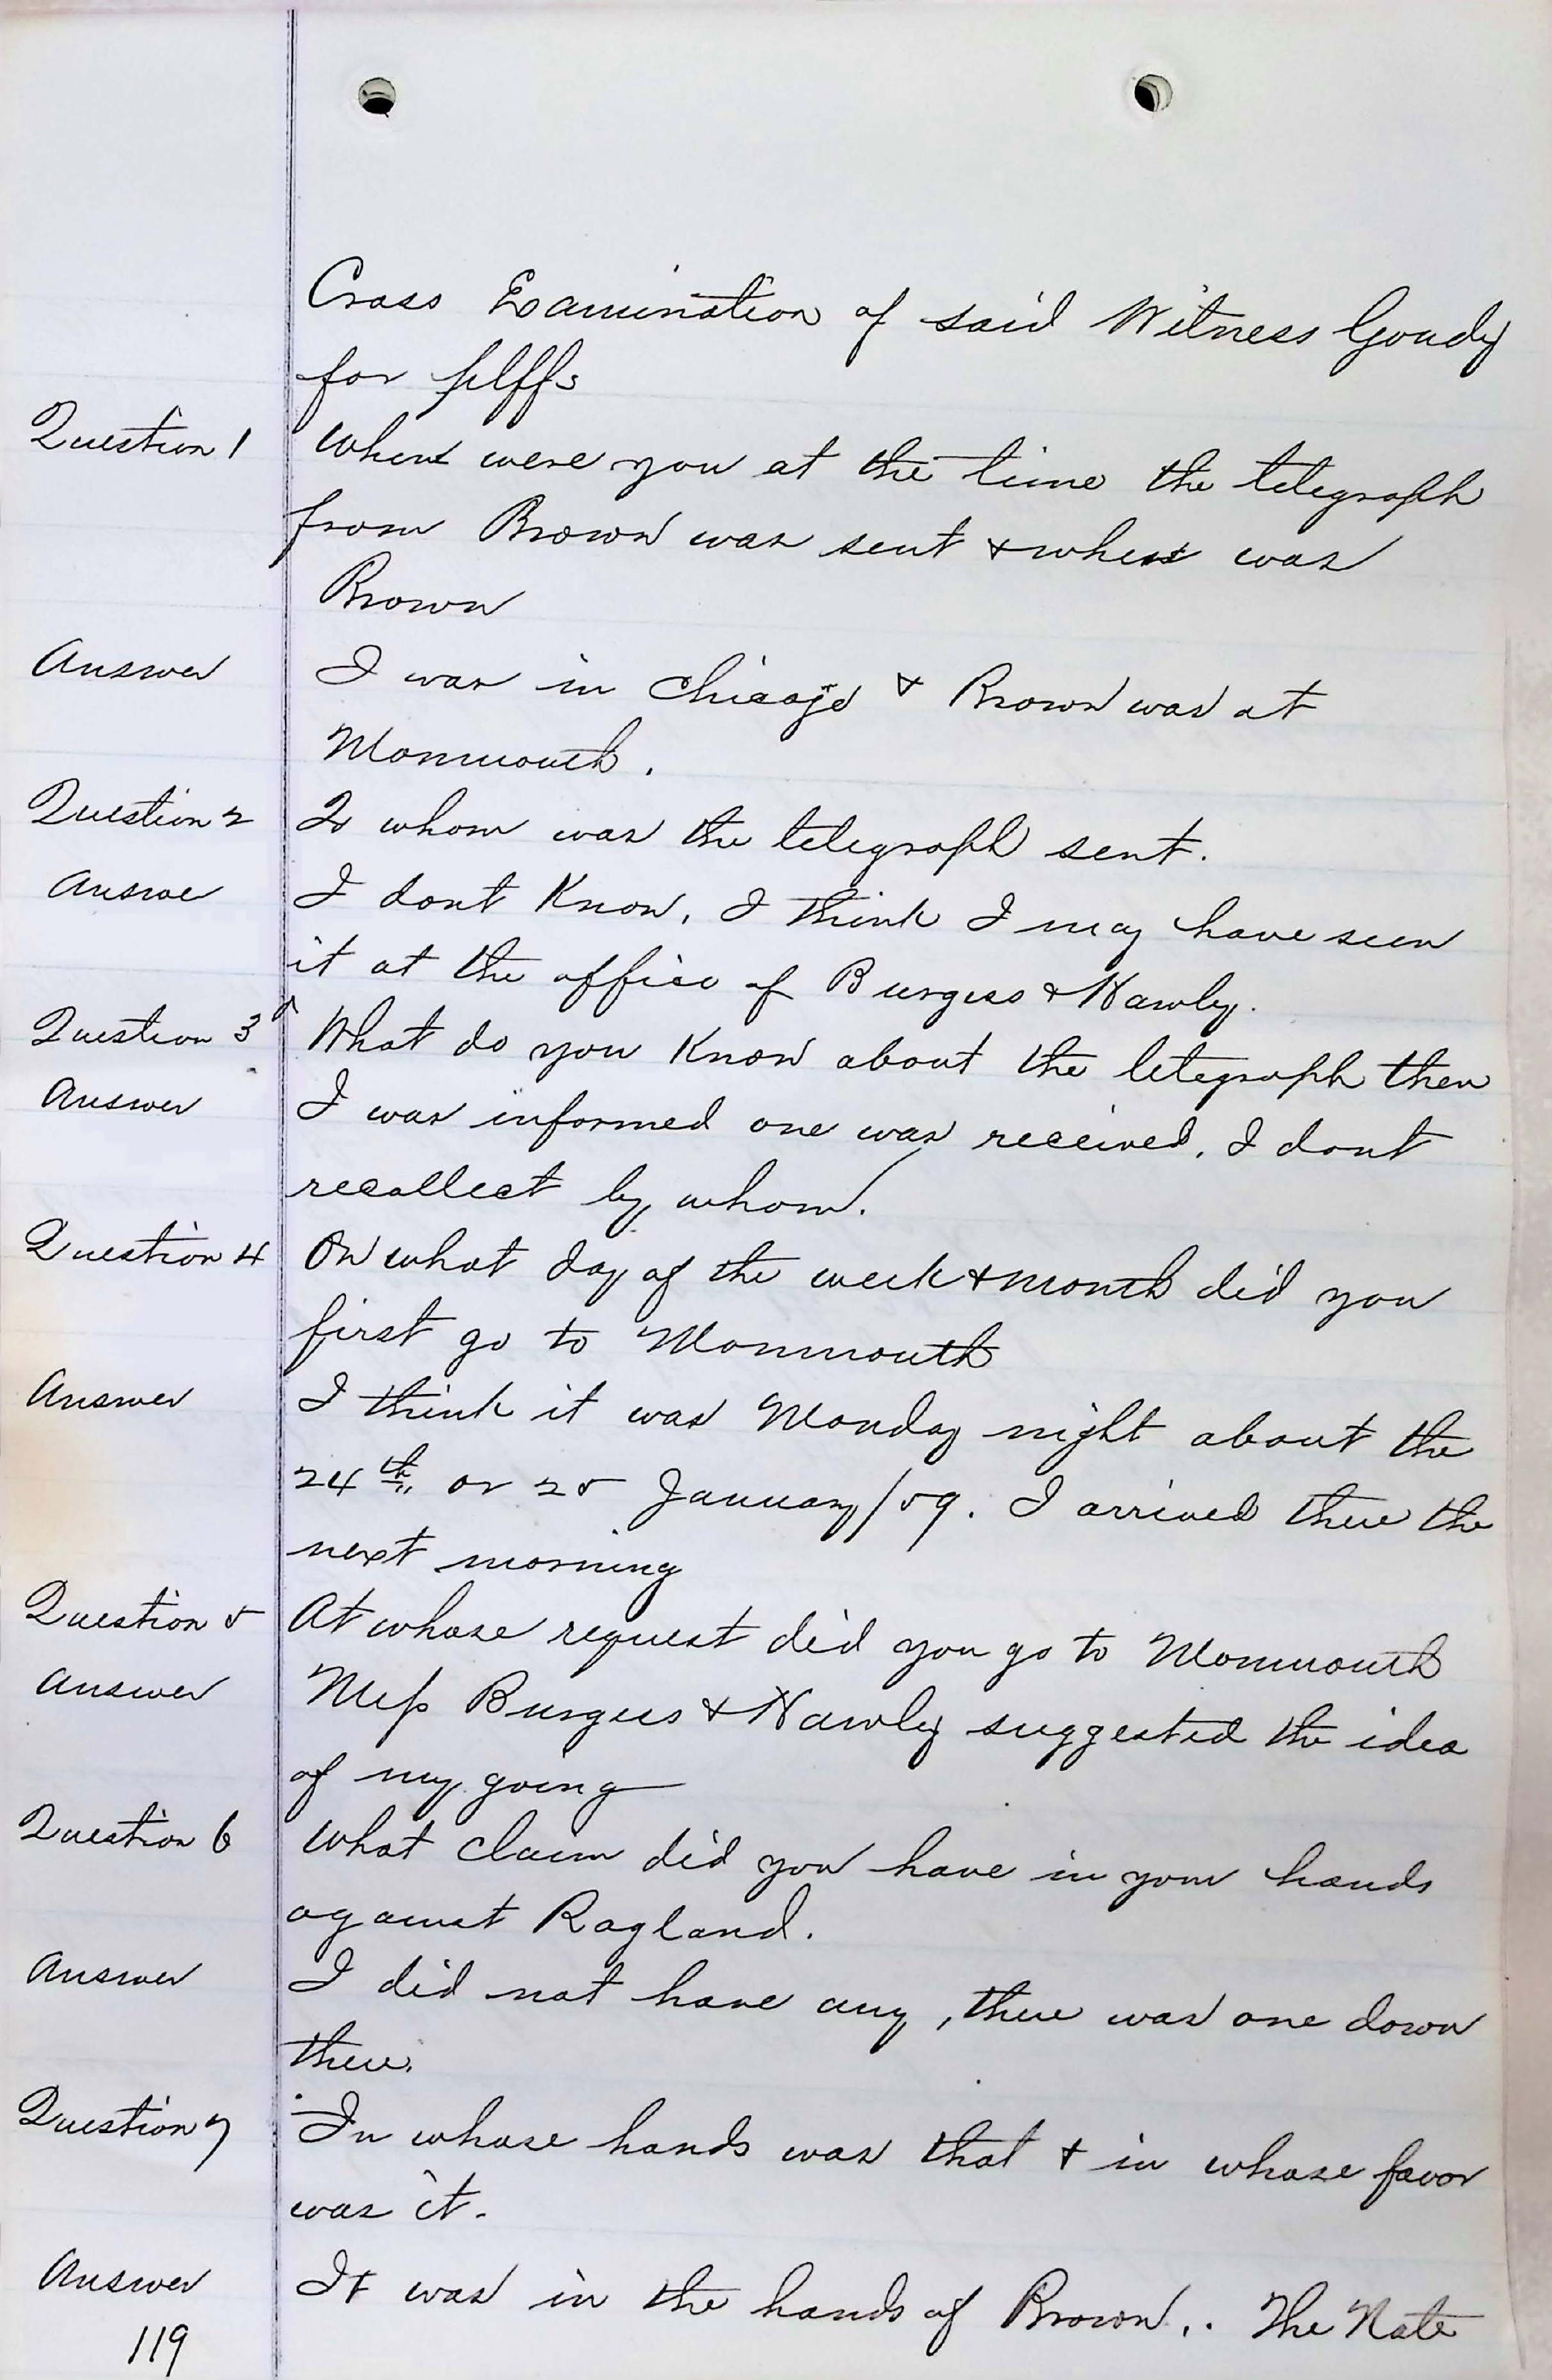 Cross Examination of said Witness Goudy
for plffs
Question 1 Where were you at the time the telegraph
from Brown was sent & where was
Brown
Answer I was in Chicago & Brown was at
Monmouth.
Question 2 To whom was the telegraph sent.
Answer I dont Know, I think I may have seen
it at the office of Burgess & Hawley.
Question 3 What do you Know about the telegraph then
Answer I was informed one was received, I dont
recollect by whom.
Question 4 On what day of the week & month did you
first go to Monmouth
Answer I think it was Monday night about the
24th or 25 January/59. I arrived there the
next morning
Question 5 At whose request did you go to Monmouth
Answer Mess Burgess & Hawley suggested the idea
of my going
Question 6 What claim did you have in your hands
against Ragland.
Answer I did not have any, there was one down
there.
Question 7 In whose hands was that & in whose favor
was it.
Answer It was in the hands of Brown. The Note
119